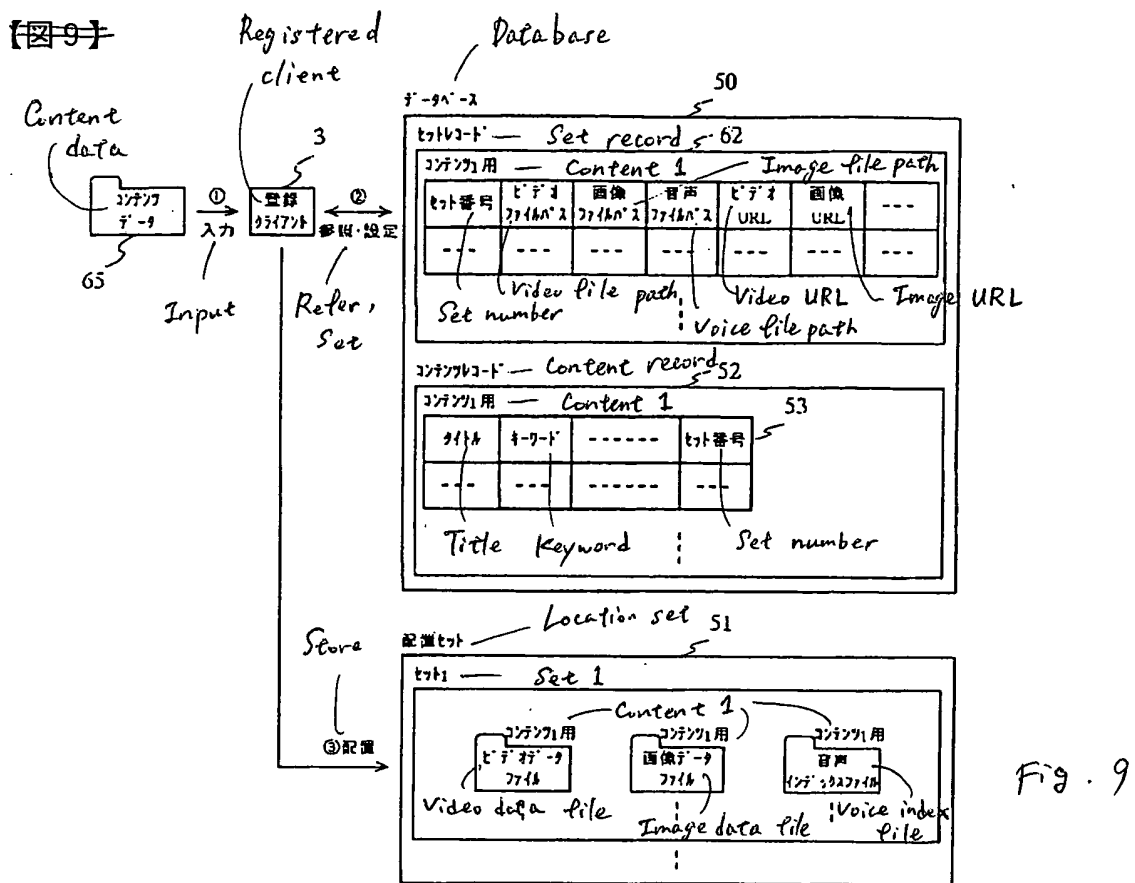 【図9】
Registered
client
Database
データベース
50
Content
data
3
コンテンツ
データ
65
①
入力
Input
登録
クライアント
②
参照・設定
Refer,
Set
セットレコード
Set record
62
コンテンツ1用
Content 1
Image file path
セット番号
ビデオ
ファイルパス
画像
ファイルパス
音声
ファイルパス
ビデオ
URL
画像
URL
---
--- --- --- --- --- --- ---
Video file path
Video URL
Image URL
Set number
Voice file path
コンテンツレコード
Content record
52
コンテンツ1用
Content 1
53
タイトル キーワード ------ セット番号
--- --- ------ ---
Title Keyword Set number
Store
③配置
配置セット
Location set
51
セット1
Set 1
Content 1
コンテンツ1用
ビデオデータ
ファイル
コンテンツ1用
画像データ
ファイル
コンテンツ1用
音声
インデックスファイル
Video data file
Image data file
Voice index
file
Fig. 9